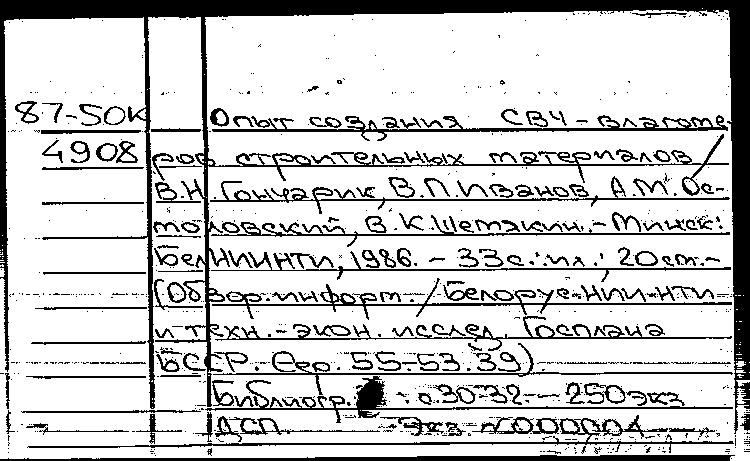 87-50К Опыт создания СВЧ-влагоме-
4908 ров строительных материалов /
В.Н. Гончарик, В.П. Иванов, А.М. Ос-
толовский, В.К. Шетякин. - Минск:
БелНИИНТИ, 1986. - 33 с.: ил.; 20 см. -
(Обзор. информ. / Белорус. НИИ НТИ
и техн.-экон. исслед. Госплана
БССР. Сер. 55.53.39)
Библиогр.: с. 30-32. - 250 экз
ДСП. Экз. N 000004